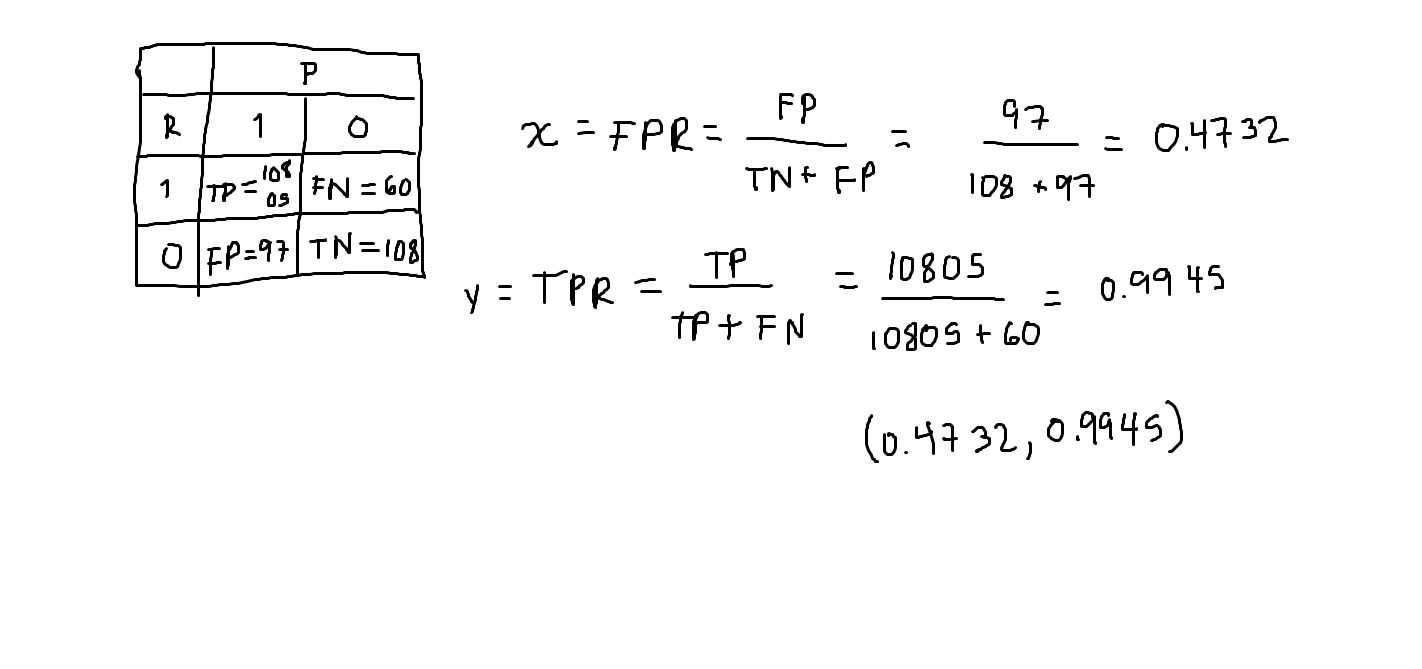 P
R 1 0
1 TP = 108 05 FN = 60
0 FP = 97 TN = 108
x = FPR = FP / TN + FP = 97 / 108 + 97 = 0.4732
y = TPR = TP / TP + FN = 10805 / 10805 + 60 = 0.9945
(0.4732, 0.9945)